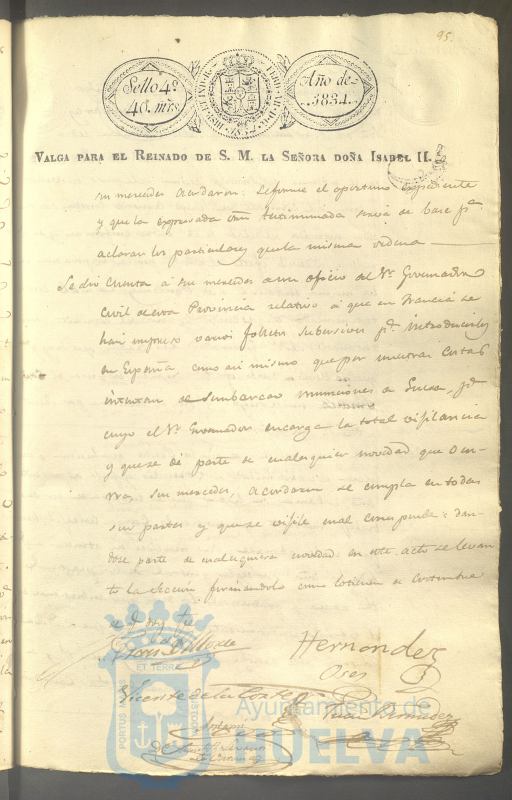 95.
Sello 4º
40. mrs
HISP. ET IND. R.
Año de
1834.
VALGA PARA EL REINADO DE S. M. LA SEÑORA DOÑA ISABEL II.
sus mercedes acordaron: Se forme el oportuno expediente
y que la expresada orn testimoniada sirva de base pª
aclarar los particulares que la misma ordena
Se dio cuenta á sus mercedes a un oficio del Sr. Governador
Civil de esta Provincia relativo á que en Francia se
han impreso varios folletos subersivos pª introducirlos
en España como asi mismo que por nuestras costas
intentan desembarcar municiones de Guerra, pª
cuyo el Sr Governador encarga la total vigilancia
y que se dé parte de cualesquier novedad que ocur-
ra, sus mercedes, acordaron se cumpla en todas
sus partes y que se vigile cual corresponde: dan-
dose parte de cualesquiera novedad en este acto se levan
to la sesion firmandolo como lo tienen de costumbre
de q doy fe
Hernandez
Vicente de la Corte
PORTUS MARIS
ET TERRAE
CUSTODIA
Ayuntamiento de
HUELVA